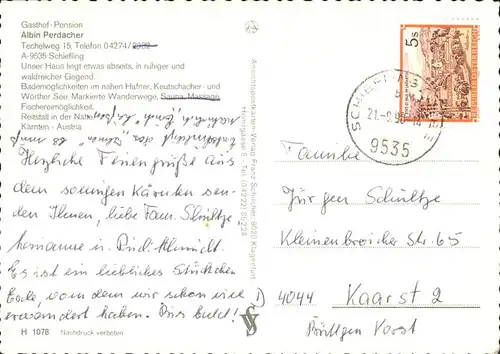 Gasthof - Pension
Albin Perdacher
Techelweg 15, Telefon 04274/
A-9535 Schiefling
Unser Haus liegt etwas abseits, in ruhiger und
waldreicher Gegend.
Bademöglichkeiten im nahen Hafner, Keutschacher- und
Wörther See. Markierte Wanderwege, Sauna, Massage,
Fischereimöglichkeit.
Reitstall in der Nähe
Kärnten - Austria
Herzliche Feriengrüße aus
dem sonnigen Kärnten sen-
den Ihnen, liebe Fam. Schultze
Hermanne u. Rudi Schmidt.
Es ist ein liebliches Stückchen
Erde, von dem wir schon viel
erwandert haben. Bis bald!
H 1078 Nachdruck verboten
Ansichtskarten-Verlag Franz Schilcher, 9020 Klagenfurt
5s
SCHIEFLING
21.-9.90-14
9535
Familie
Jürgen Schultze
Kleinenbroicher Str. 65
D) 4044 Kaarst 2
Büttgen Vorst